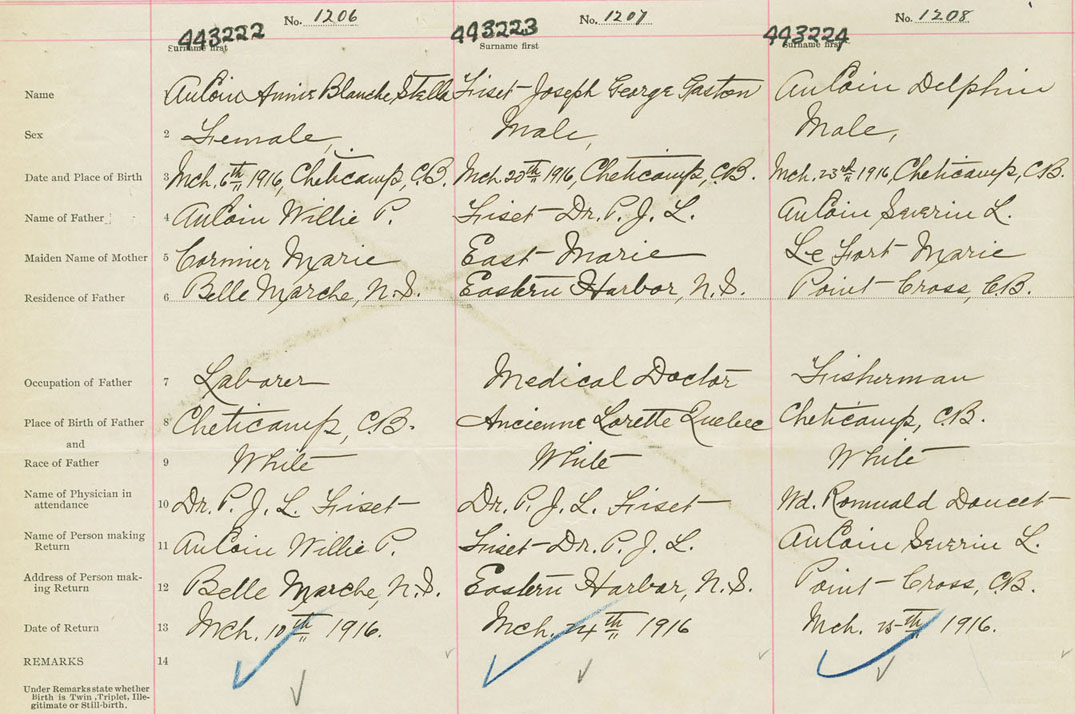 No. 1206 No. 1207 No. 1208
443222 443223 443224
Surname first Surname first Surname first
Name 1 AuCoin Annie Blanche Stella Fiset Joseph George Gaston AuCoin Delphin
Sex 2 Female, Male, Male,
Date and Place of Birth 3 Mch. 6th 1916, Cheticamp, C.B. Mch. 20th 1916, Cheticamp, C.B. Mch. 23rd 1916, Cheticamp, C.B.
Name of Father 4 AuCoin Willie P. Fiset Dr. P. J. L. AuCoin Severin L.
Maiden Name of Mother 5 Cormier Marie East Marie Le Fort Marie
Residence of Father 6 Belle Marche, N.S. Eastern Harbor, N.S. Point Cross, C.B.
Occupation of Father 7 Laborer Medical Doctor Fisherman
Place of Birth of Father 8 Cheticamp, C.B. Ancienne Lorette Quebec Cheticamp, C.B.
and
Race of Father 9 White White White
Name of Physician in
attendance 10 Dr. P. J. L. Fiset Dr. P. J. L. Fiset Wd. Romuald Doucet
Name of Person making
Return 11 AuCoin Willie P. Fiset Dr. P. J. L. AuCoin Severin L.
Address of Person mak-
ing Return 12 Belle Marche, N.S. Eastern Harbor, N.S. Point Cross, C.B.
Date of Return 13 Mch. 10th 1916. Mch. 24th 1916 Mch. 25th 1916.
REMARKS 14
Under Remarks state whether
Birth is Twin, Triplet, Ille-
gitimate or Still-birth.